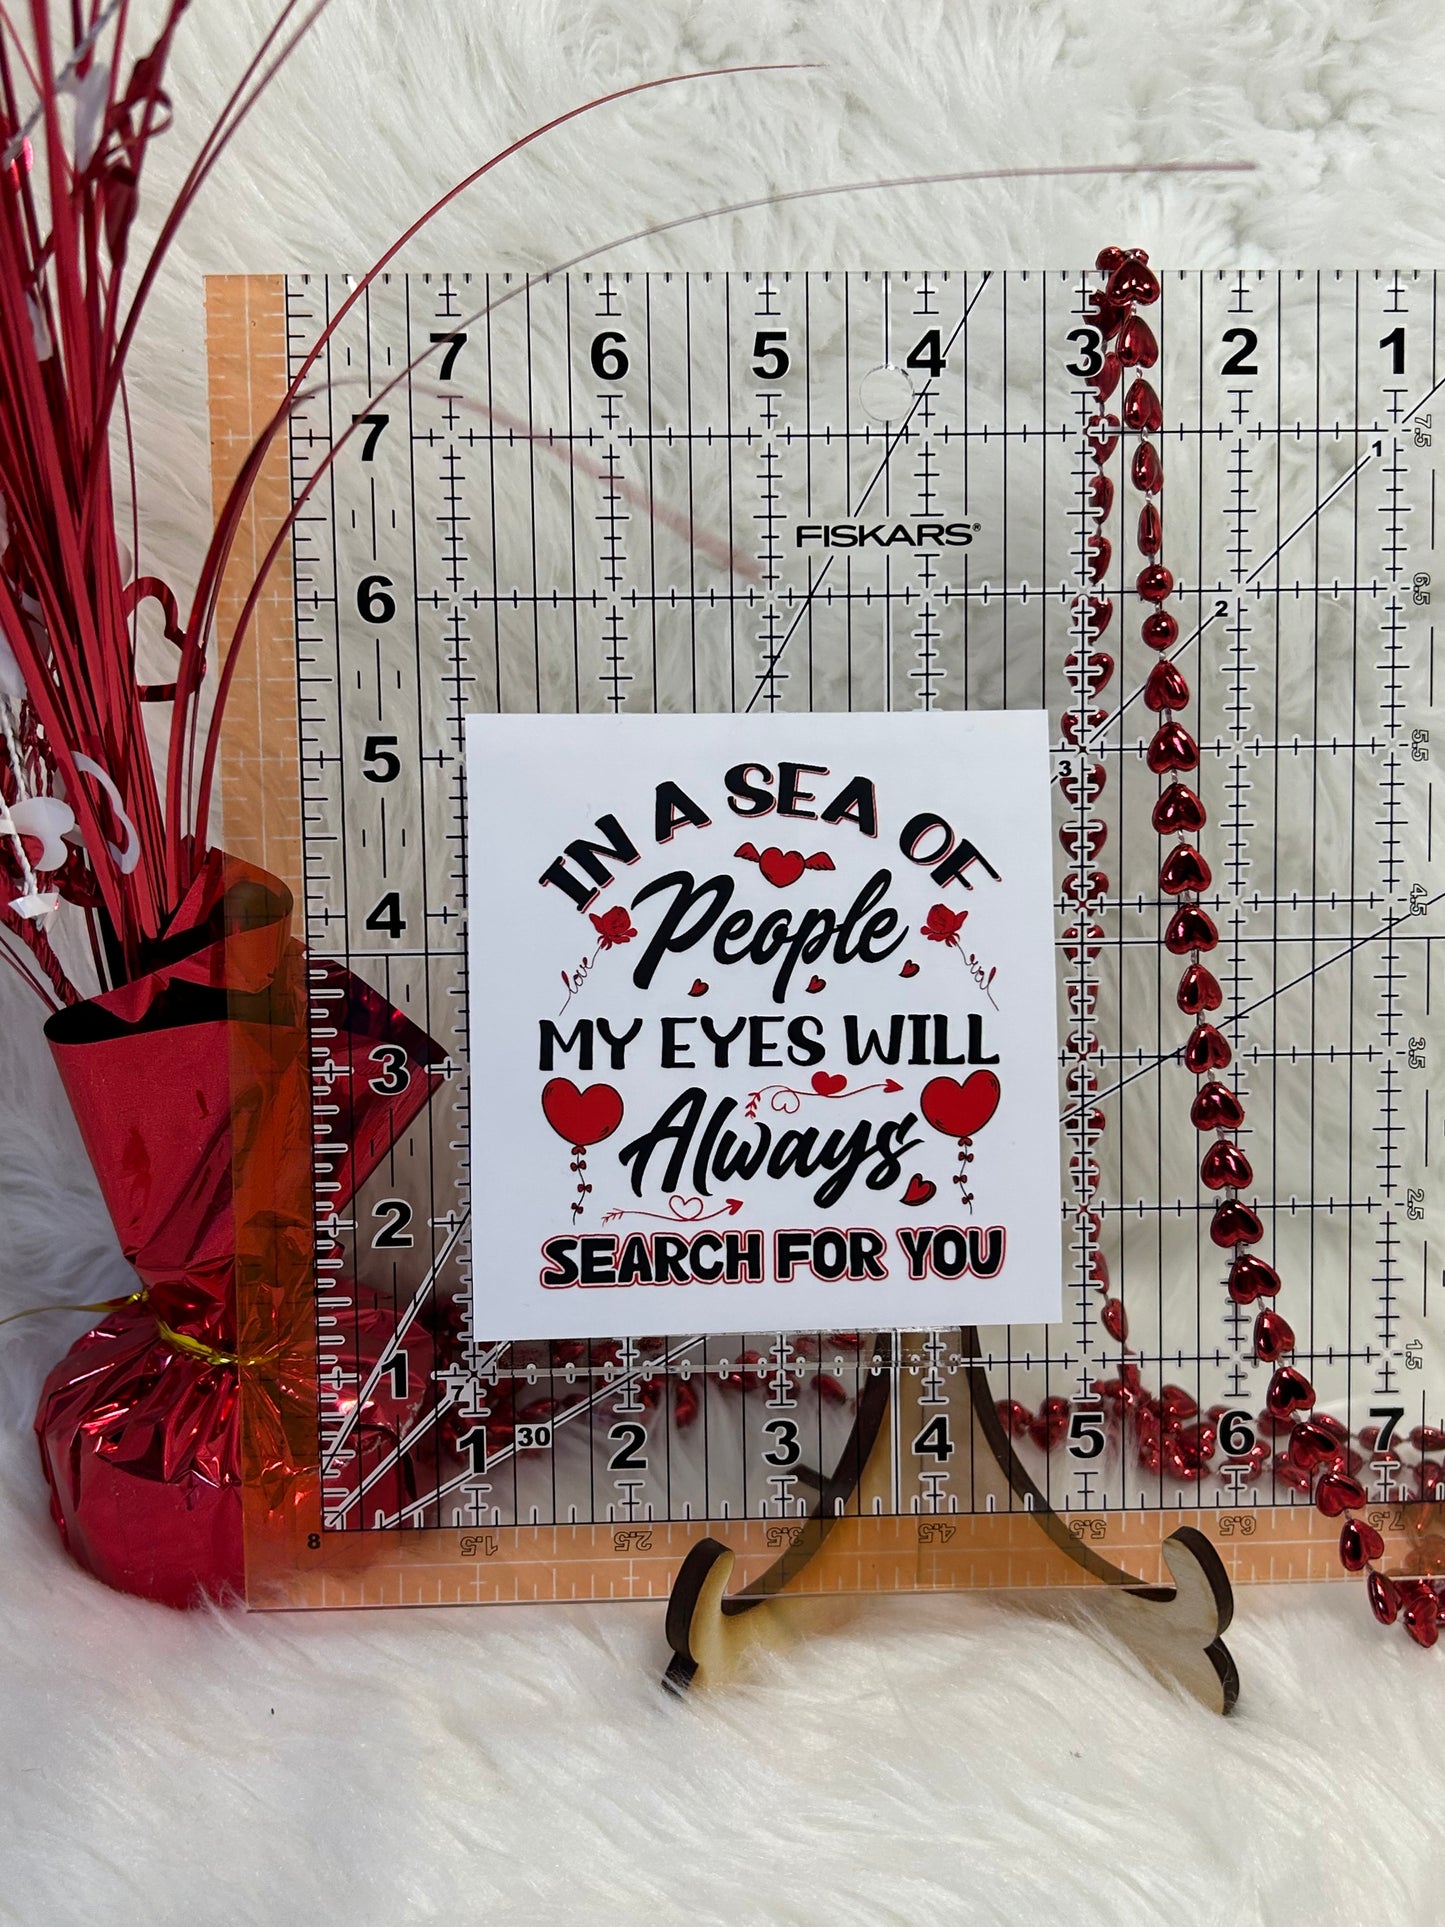 7 6 5 4 3 2 1
7
7.5
1
FISKARS®
6
6.5
2
5
5.5
3
IN A SEA OF
People
love
love
4
4.5
MY EYES WILL
3
3.5
Always
2
2.5
SEARCH FOR YOU
1
1.5
7
1 30 2 3 4 5 6 7
8 1.5 2.5 3.5 4.5 5.5 6.5 7.5